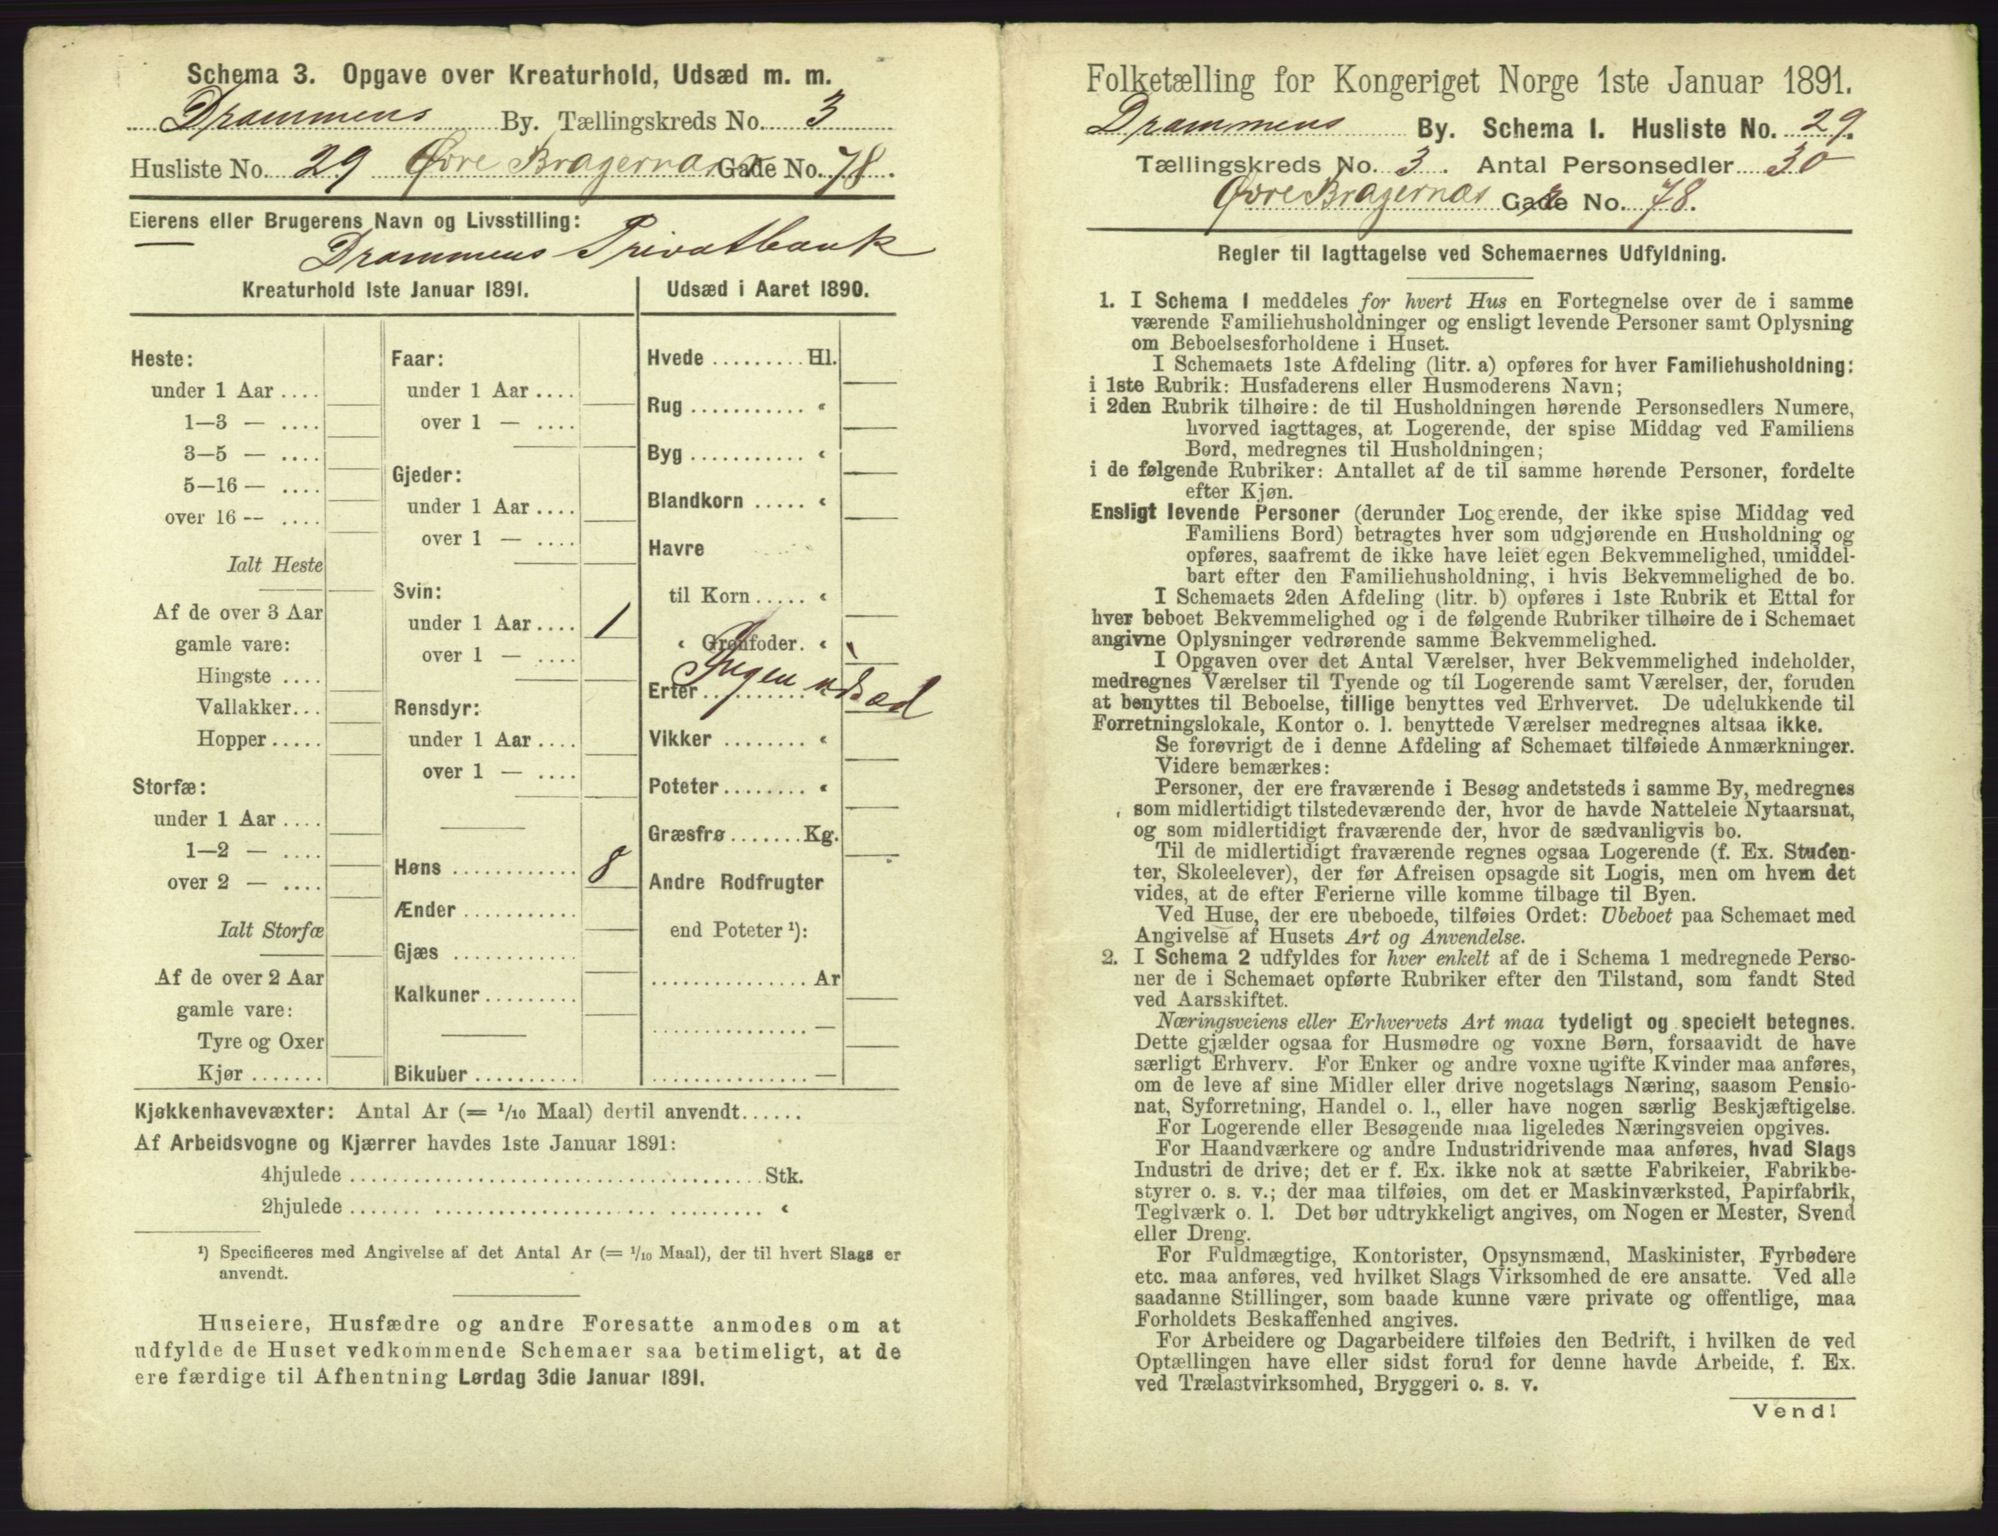 Schema 3. Opgave over Kreaturhold, Udsæd m. m.
Drammens By. Tællingskreds No. 3
Husliste No. 29 Øvre Bragernæs Gade No. 78.
Eierens eller Brugerens Navn og Livsstilling:
Drammens Privatbank
Kreaturhold 1ste Januar 1891.
Heste:
under 1 Aar ....
1—3 — ....
3—5 — ....
5—16 — ....
over 16 — ....
Ialt Heste
Af de over 3 Aar
gamle vare:
Hingste ....
Vallakker...
Hopper.....
Storfæ:
under 1 Aar ....
1—2 — ....
over 2 — ....
Ialt Storfæ
Af de over 2 Aar
gamle vare:
Tyre og Oxer
Kjør .......
Faar:
under 1 Aar ....
over 1 — ....
Gjeder:
under 1 Aar ....
over 1 — ....
Svin:
under 1 Aar .... 1
over 1 — ....
Rensdyr:
under 1 Aar ....
over 1 — ....
Høns ............ 8
Ænder ...........
Gjæs ............
Kalkuner.........
Bikuber ..........
Udsæd i Aaret 1890.
Hvede ........ Hl.
Rug ........... "
Byg ........... "
Blandkorn ..... "
Havre
til Korn ..... "
" Grønfoder. "
Ingen udsæd
Erter .......... "
Vikker ........ "
Poteter ........ "
Græsfrø ....... Kg.
Andre Rodfrugter
end Poteter ¹):
............... Ar
............... —
............... —
Kjøkkenhavevæxter: Antal Ar (= 1/10 Maal) dertil anvendt......
Af Arbeidsvogne og Kjærrer havdes 1ste Januar 1891:
4hjulede ........................................ Stk.
2hjulede ........................................ "
¹) Specificeres med Angivelse af det Antal Ar (= 1/10 Maal), der til hvert Slags er
anvendt.
Huseiere, Husfædre og andre Foresatte anmodes om at
udfylde de Huset vedkommende Schemaer saa betimeligt, at de
ere færdige til Afhentning Lørdag 3die Januar 1891.
Folketælling for Kongeriget Norge 1ste Januar 1891.
Drammens By. Schema 1. Husliste No. 29.
Tællingskreds No. 3. Antal Personsedler 30
Øvre Bragernæs Gade No. 78.
Regler til Iagttagelse ved Schemaernes Udfyldning.
1. I Schema 1 meddeles for hvert Hus en Fortegnelse over de i samme
værende Familiehusholdninger og ensligt levende Personer samt Oplysning
om Beboelsesforholdene i Huset.
I Schemaets 1ste Afdeling (litr. a) opføres for hver Familiehusholdning:
i 1ste Rubrik: Husfaderens eller Husmoderens Navn;
i 2den Rubrik tilhøire: de til Husholdningen hørende Personsedlers Numere,
hvorved iagttages, at Logerende, der spise Middag ved Familiens
Bord, medregnes til Husholdningen;
i de følgende Rubriker: Antallet af de til samme hørende Personer, fordelte
efter Kjøn.
Ensligt levende Personer (derunder Logerende, der ikke spise Middag ved
Familiens Bord) betragtes hver som udgjørende en Husholdning og
opføres, saafremt de ikke have leiet egen Bekvemmelighed, umiddel-
bart efter den Familiehusholdning, i hvis Bekvemmelighed de bo.
I Schemaets 2den Afdeling (litr. b) opføres i 1ste Rubrik et Ettal for
hver beboet Bekvemmelighed og i de følgende Rubriker tilhøire de i Schemaet
angivne Oplysninger vedrørende samme Bekvemmelighed.
I Opgaven over det Antal Værelser, hver Bekvemmelighed indeholder,
medregnes Værelser til Tyende og til Logerende samt Værelser, der, foruden
at benyttes til Beboelse, tillige benyttes ved Erhvervet. De udelukkende til
Forretningslokale, Kontor o. l. benyttede Værelser medregnes altsaa ikke.
Se forøvrigt de i denne Afdeling af Schemaet tilføiede Anmærkninger.
Videre bemærkes:
Personer, der ere fraværende i Besøg andetsteds i samme By, medregnes
som midlertidigt tilstedeværende der, hvor de havde Natteleie Nytaarsnat,
og som midlertidigt fraværende der, hvor de sædvanligvis bo.
Til de midlertidigt fraværende regnes ogsaa Logerende (f. Ex. Studen-
ter, Skoleelever), der før Afreisen opsagde sit Logis, men om hvem det
vides, at de efter Ferierne ville komme tilbage til Byen.
Ved Huse, der ere ubeboede, tilføies Ordet: Ubeboet paa Schemaet med
Angivelse af Husets Art og Anvendelse.
2. I Schema 2 udfyldes for hver enkelt af de i Schema 1 medregnede Perso-
ner de i Schemaet opførte Rubriker efter den Tilstand, som fandt Sted
ved Aarsskiftet.
Næringsveiens eller Erhvervets Art maa tydeligt og specielt betegnes.
Dette gjælder ogsaa for Husmødre og voxne Børn, forsaavidt de have
særligt Erhverv. For Enker og andre voxne ugifte Kvinder maa anføres,
om de leve af sine Midler eller drive nogetslags Næring, saasom Pensio-
nat, Syforretning, Handel o. l., eller have nogen særlig Beskjæftigelse.
For Logerende eller Besøgende maa ligeledes Næringsveien opgives.
For Haandværkere og andre Industridrivende maa anføres, hvad Slags
Industri de drive; det er f. Ex. ikke nok at sætte Fabrikeier, Fabrikbe-
styrer o. s. v.; der maa tilføies, om det er Maskinværksted, Papirfabrik,
Teglværk o. l. Det bør udtrykkeligt angives, om Nogen er Mester, Svend
eller Dreng.
For Fuldmægtige, Kontorister, Opsynsmænd, Maskinister, Fyrbødere
etc. maa anføres, ved hvilket Slags Virksomhed de ere ansatte. Ved alle
saadanne Stillinger, som baade kunne være private og offentlige, maa
Forholdets Beskaffenhed angives.
For Arbeidere og Dagarbeidere tilføies den Bedrift, i hvilken de ved
Optællingen have eller sidst forud for denne havde Arbeide, f. Ex.
ved Trælastvirksomhed, Bryggeri o. s. v.
Vend!